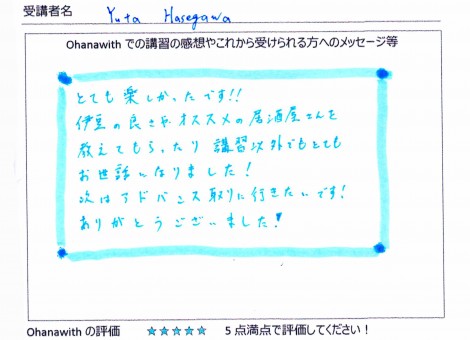 受講者名 Yuta Hasegawa
Ohanawith での講習の感想やこれから受けられる方へのメッセージ等
とても楽しかったです!!
伊豆の良さや、オススメの居酒屋さんを
教えてもらったり 講習以外でもとても
お世話になりました!
次はアドバンス取りに行きたいです!
ありがとうございました!
Ohanawith の評価 ☆☆☆☆☆ 5 点満点で評価してください!